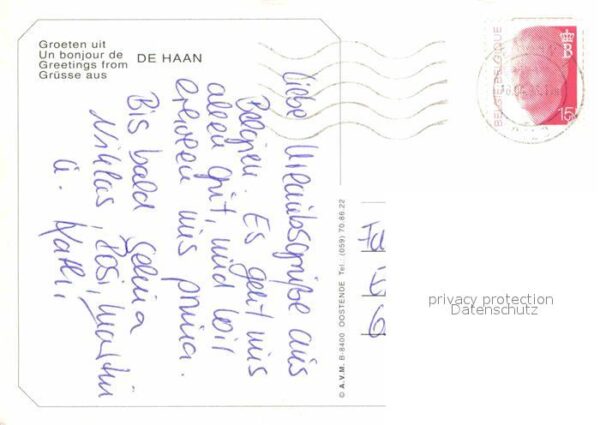 Groeten uit
Un bonjour de
Greetings from
Grüsse aus
DE HAAN
Liebe Urlaubsgrüße aus
Belgien. Es geht uns
allen gut, und wir
erholen uns prima.
Bis bald
Niklas, Rosi, Martin
u.
© A.V.M. B-8400 OOSTENDE Tel.: (059) 70.86.22
BELGIE-BELGIQUE
B
15F
privacy protection
Datenschutz